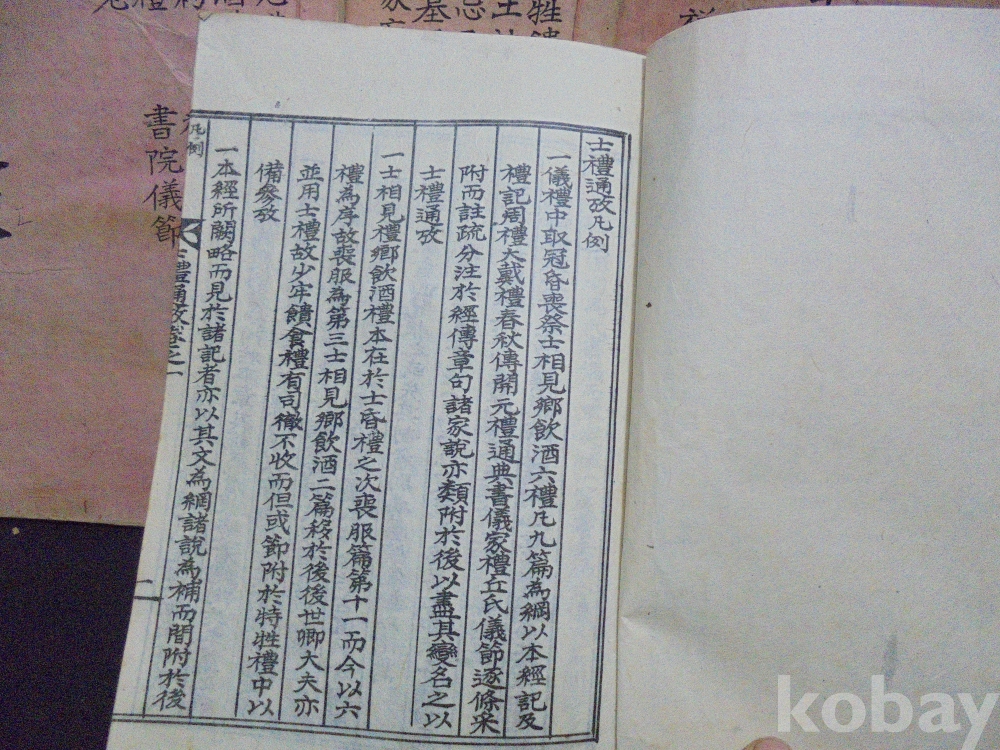 士禮通攷凡例
一儀禮中取冠昏喪祭士相見鄉飲酒六禮凡九篇為綱以本經記及
禮記周禮大戴禮春秋傳開元禮通典書儀家禮丘氏儀節逐條采
附而註疏分注於經傳章句諸家說亦類附於後以盡其變名之以
士禮通攷
一士相見禮鄉飲酒禮本在於士昏禮之次喪服篇第十一而今以六
禮為序故喪服為第三士相見鄉飲酒二篇移於後後世卿大夫亦
並用士禮故少牢饋食禮有司徹不收而但或節附於特牲禮中以
備參攷
一本經所闕略而見於諸記者亦以其文為綱諸說為補而間附於後
凡例
士禮通攷卷之一
二
書院儀節
kobay